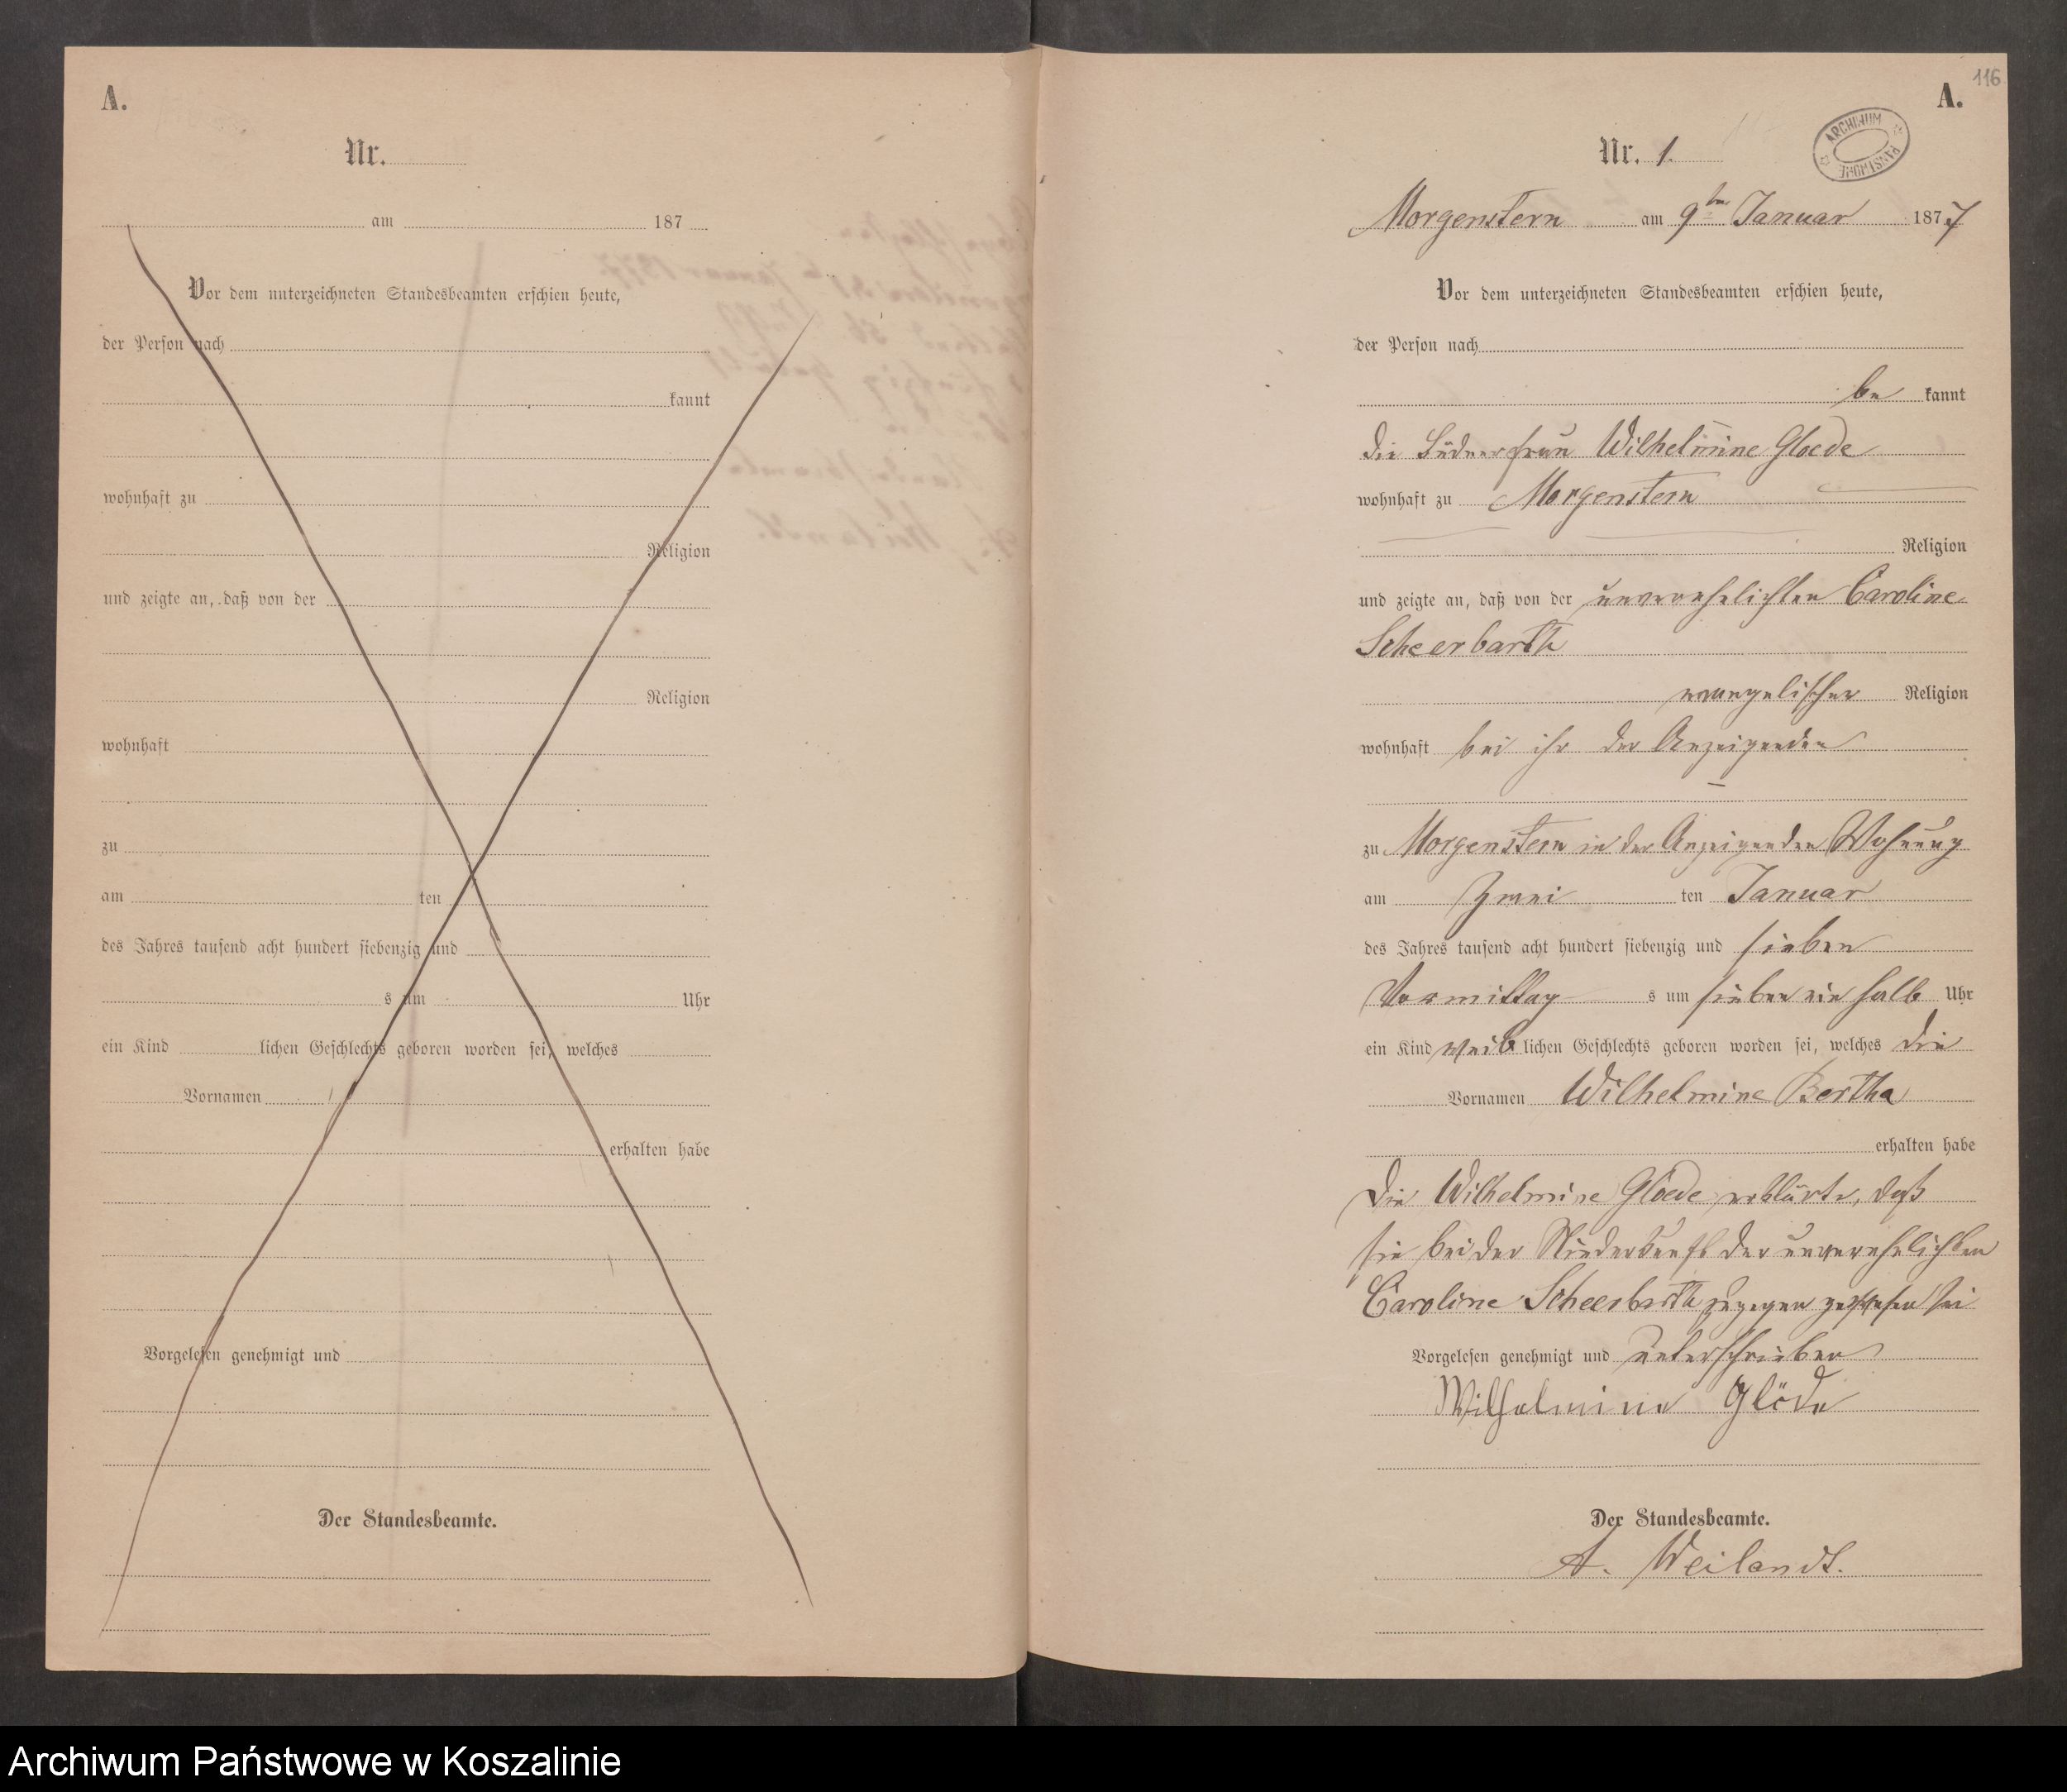 A.
Nr.
am 187
Vor dem unterzeichneten Standesbeamten erschien heute,
der Person nach
kannt
wohnhaft zu
Religion
und zeigte an, daß von der
Religion
wohnhaft
zu
am ten
des Jahres tausend acht hundert siebenzig und
s um Uhr
ein Kind lichen Geschlechts geboren worden sei, welches
Vornamen
erhalten habe
Vorgelesen genehmigt und
Der Standesbeamte.
116
A.
ARCHIWUM PAŃSTWOWE
Nr. 1.
Morgenstern am 9ten Januar 1877
Vor dem unterzeichneten Standesbeamten erschien heute,
der Person nach
be kannt
die Büdnerfrau Wilhelmine Gloede
wohnhaft zu Morgenstern
Religion
und zeigte an, daß von der unverehelichten Caroline
Scheerbarth
evangelischer Religion
wohnhaft bei ihr der Anzeigenden
zu Morgenstern in der Anzeigenden Wohnung
am Zwei ten Januar
des Jahres tausend acht hundert siebenzig und sieben
Vormittag s um sieben ein halb Uhr
ein Kind weib lichen Geschlechts geboren worden sei, welches die
Vornamen Wilhelmine Bertha
erhalten habe
Die Wilhelmine Gloede erklärte, daß
sie bei der Niederkunft der unverehelichten
Caroline Scheerbarth zugegen gewesen sei
Vorgelesen genehmigt und unterschrieben
Wilhelmine Glöde
Der Standesbeamte.
A. Weilandt.
Archiwum Państwowe w Koszalinie